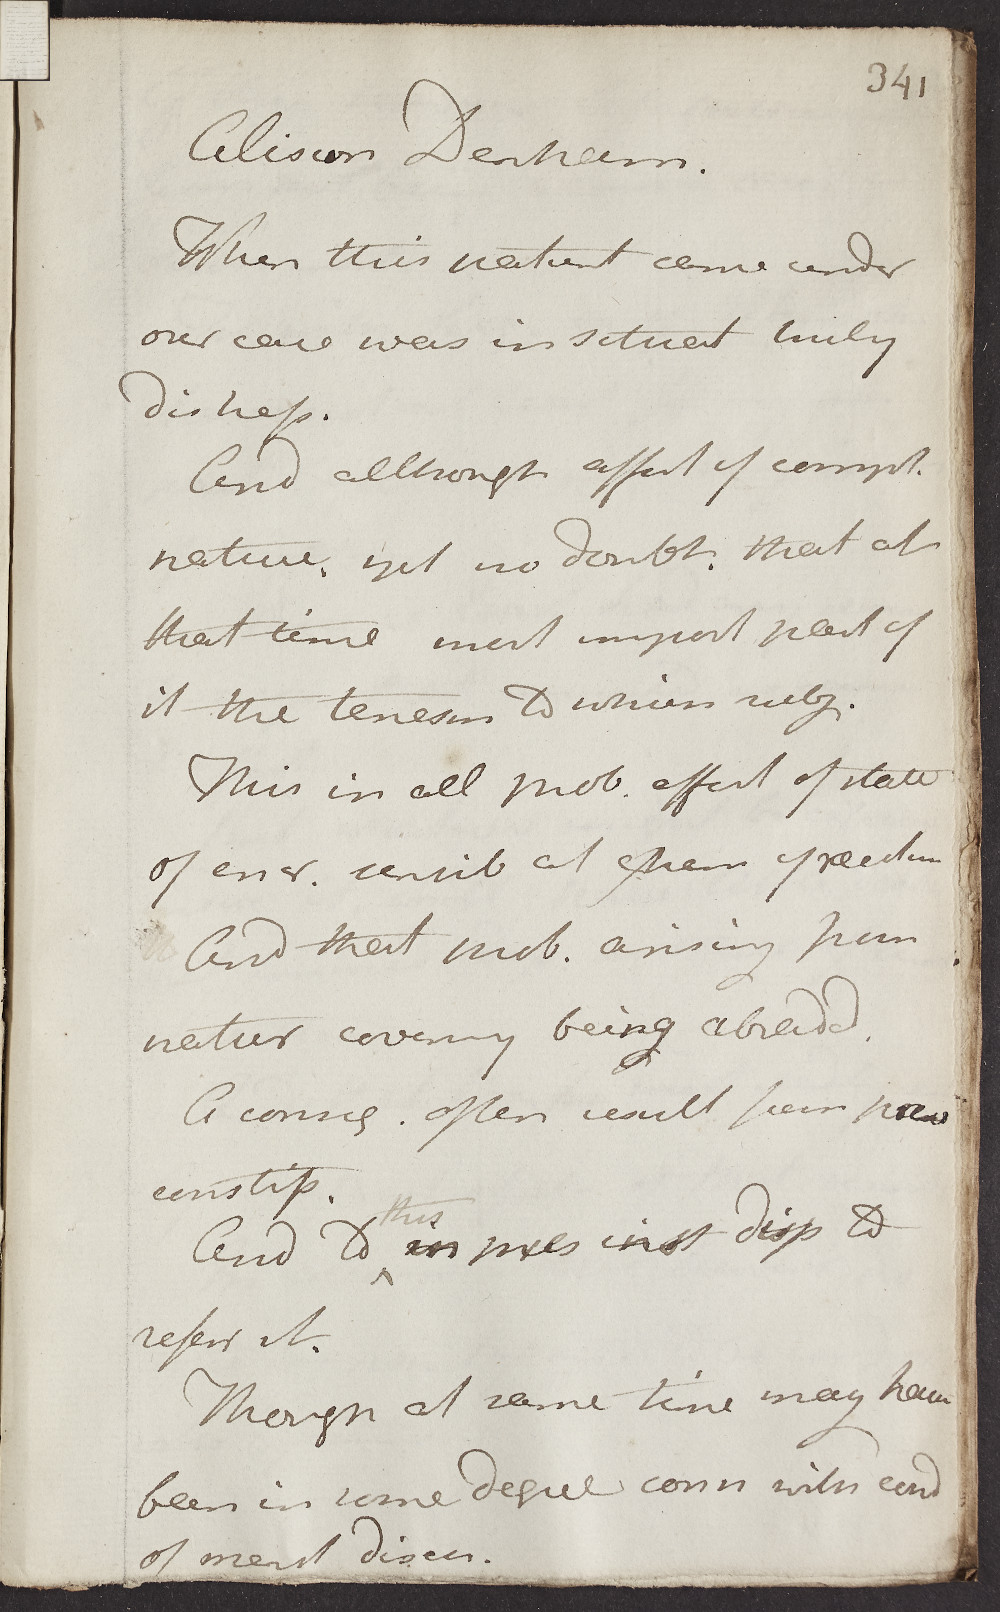 341
Alison Denham.
When this patient came under
our care was in situat truly
distress.
And although affect of compl.
nature, yet no doubt, that at
that time most import part of
it the tenesm to which subj.
This in all prob. effect of state
of incr. sensib at of rectum
And that prob. arising from
natur covering being abraded.
A conseq. often result from prev
constip.
And to this in pres inst disp to
refer it.
Though at same time may have
been in some degree conn with cond
of menst discu.